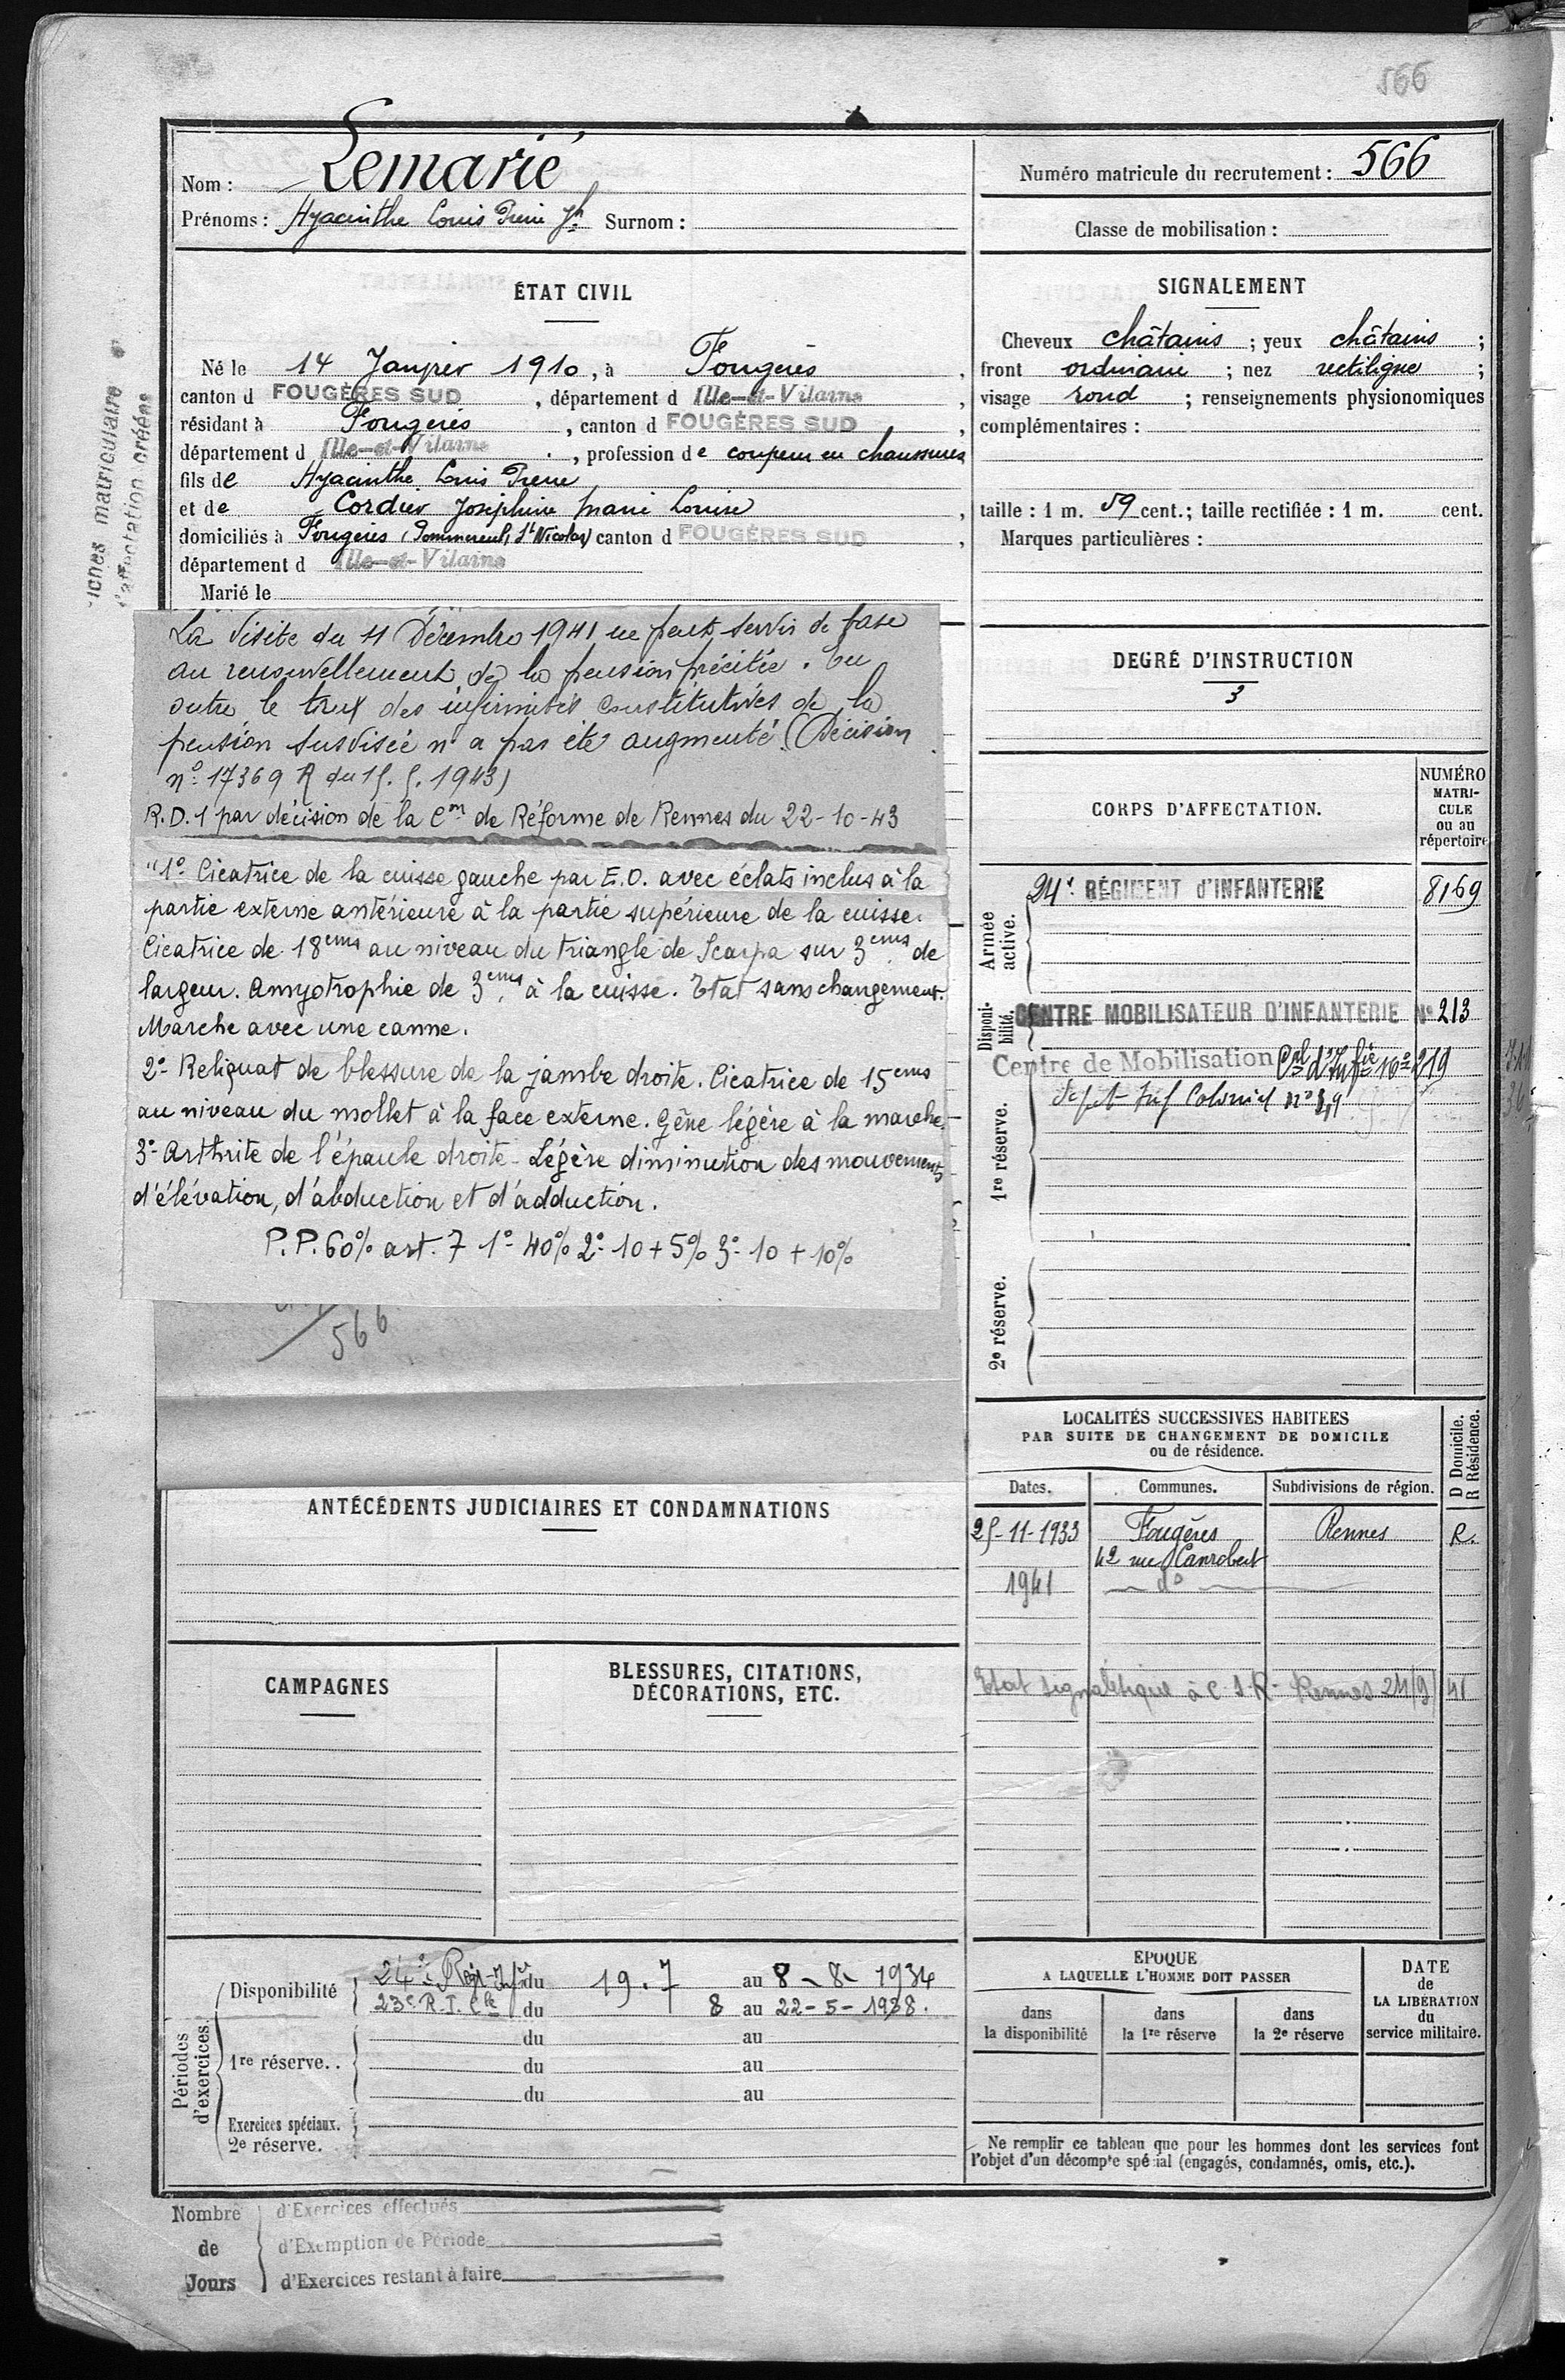 566
Nom : Lemarié
Prénoms : Hyacinthe Louis Pierre Jh Surnom :
Numéro matricule du recrutement : 566
Classe de mobilisation :
ÉTAT CIVIL
Né le 14 Janvier 1910, à Fougères,
canton d FOUGÈRES SUD, département d Ille-et-Vilaine,
résidant à Fougères, canton d FOUGÈRES SUD,
département d Ille-et-Vilaine, profession de coupeur en chaussures
fils de Hyacinthe Louis Pierre
et de Cordier Joséphine Marie Louise,
domiciliés à Fougères (Pommereul, St Nicolas) canton d FOUGÈRES SUD,
département d Ille-et-Vilaine
Marié le
fiches matriculaire
d'affectation créées
La visite du 11 Décembre 1941 ne peut servir de base
au renouvellement de la pension précitée. En
outre le taux des infirmités constitutives de la
pension susvisée n'a pas été augmenté (Décision
n° 17369 R du 15.5.1943)
R.D.1 par décision de la Cm de Réforme de Rennes du 22-10-43
"1° Cicatrice de la cuisse gauche par E.O. avec éclats inclus à la
partie externe antérieure à la partie supérieure de la cuisse.
Cicatrice de 18cms au niveau du triangle de Scarpa sur 3cms de
largeur. Amyotrophie de 3cms à la cuisse. Etat sans changement.
Marche avec une canne.
2° Reliquat de blessure de la jambe droite. Cicatrice de 15cms
au niveau du mollet à la face externe. Gêne légère à la marche.
3° Arthrite de l'épaule droite - Légère diminution des mouvements
d'élévation, d'abduction et d'adduction.
P.P. 60% art. 7 1° 40% 2° 10 + 5% 3° 10 + 10%
566
ANTÉCÉDENTS JUDICIAIRES ET CONDAMNATIONS
CAMPAGNES
BLESSURES, CITATIONS,
DÉCORATIONS, ETC.
Périodes
d'exercices.
Disponibilité
24e Rgt Infie du 19.7 au 8-8-1934
23e R.I.Cle du 8 au 22-5-1938.
1re réserve..
du au
du au
du au
Exercices spéciaux.
2e réserve.
Nombre
de
Jours
d'Exercices effectués
d'Exemption de Période
d'Exercices restant à faire
SIGNALEMENT
Cheveux châtains ; yeux châtains ;
front ordinaire ; nez rectiligne ;
visage rond ; renseignements physionomiques
complémentaires :
taille : 1 m. 59 cent.; taille rectifiée : 1 m. cent.
Marques particulières :
DEGRÉ D'INSTRUCTION
3
CORPS D'AFFECTATION.
NUMÉRO
MATRI-
CULE
ou au
répertoire
Armée
active.
24e RÉGIMENT d'INFANTERIE 8169
Disponi-
bilité.
CENTRE MOBILISATEUR D'INFANTERIE N° 213
Centre de Mobilisation Cal d'Infie N° 219
1re réserve.
Dépôt Inf Colonial n°
2e réserve.
LOCALITÉS SUCCESSIVES HABITEES
PAR SUITE DE CHANGEMENT DE DOMICILE
ou de résidence.
D Domicile.
R Résidence.
Dates. Communes. Subdivisions de région.
25-11-1933 Fougères Rennes R.
42 rue Canrobert
1941 do
Etat signalétique à C.S.R. Rennes 24/9/41
EPOQUE
A LAQUELLE L'HOMME DOIT PASSER
DATE
de
LA LIBÉRATION
du
service militaire.
dans
la disponibilité
dans
la 1re réserve
dans
la 2e réserve
Ne remplir ce tableau que pour les hommes dont les services font
l'objet d'un décompte spécial (engagés, condamnés, omis, etc.).